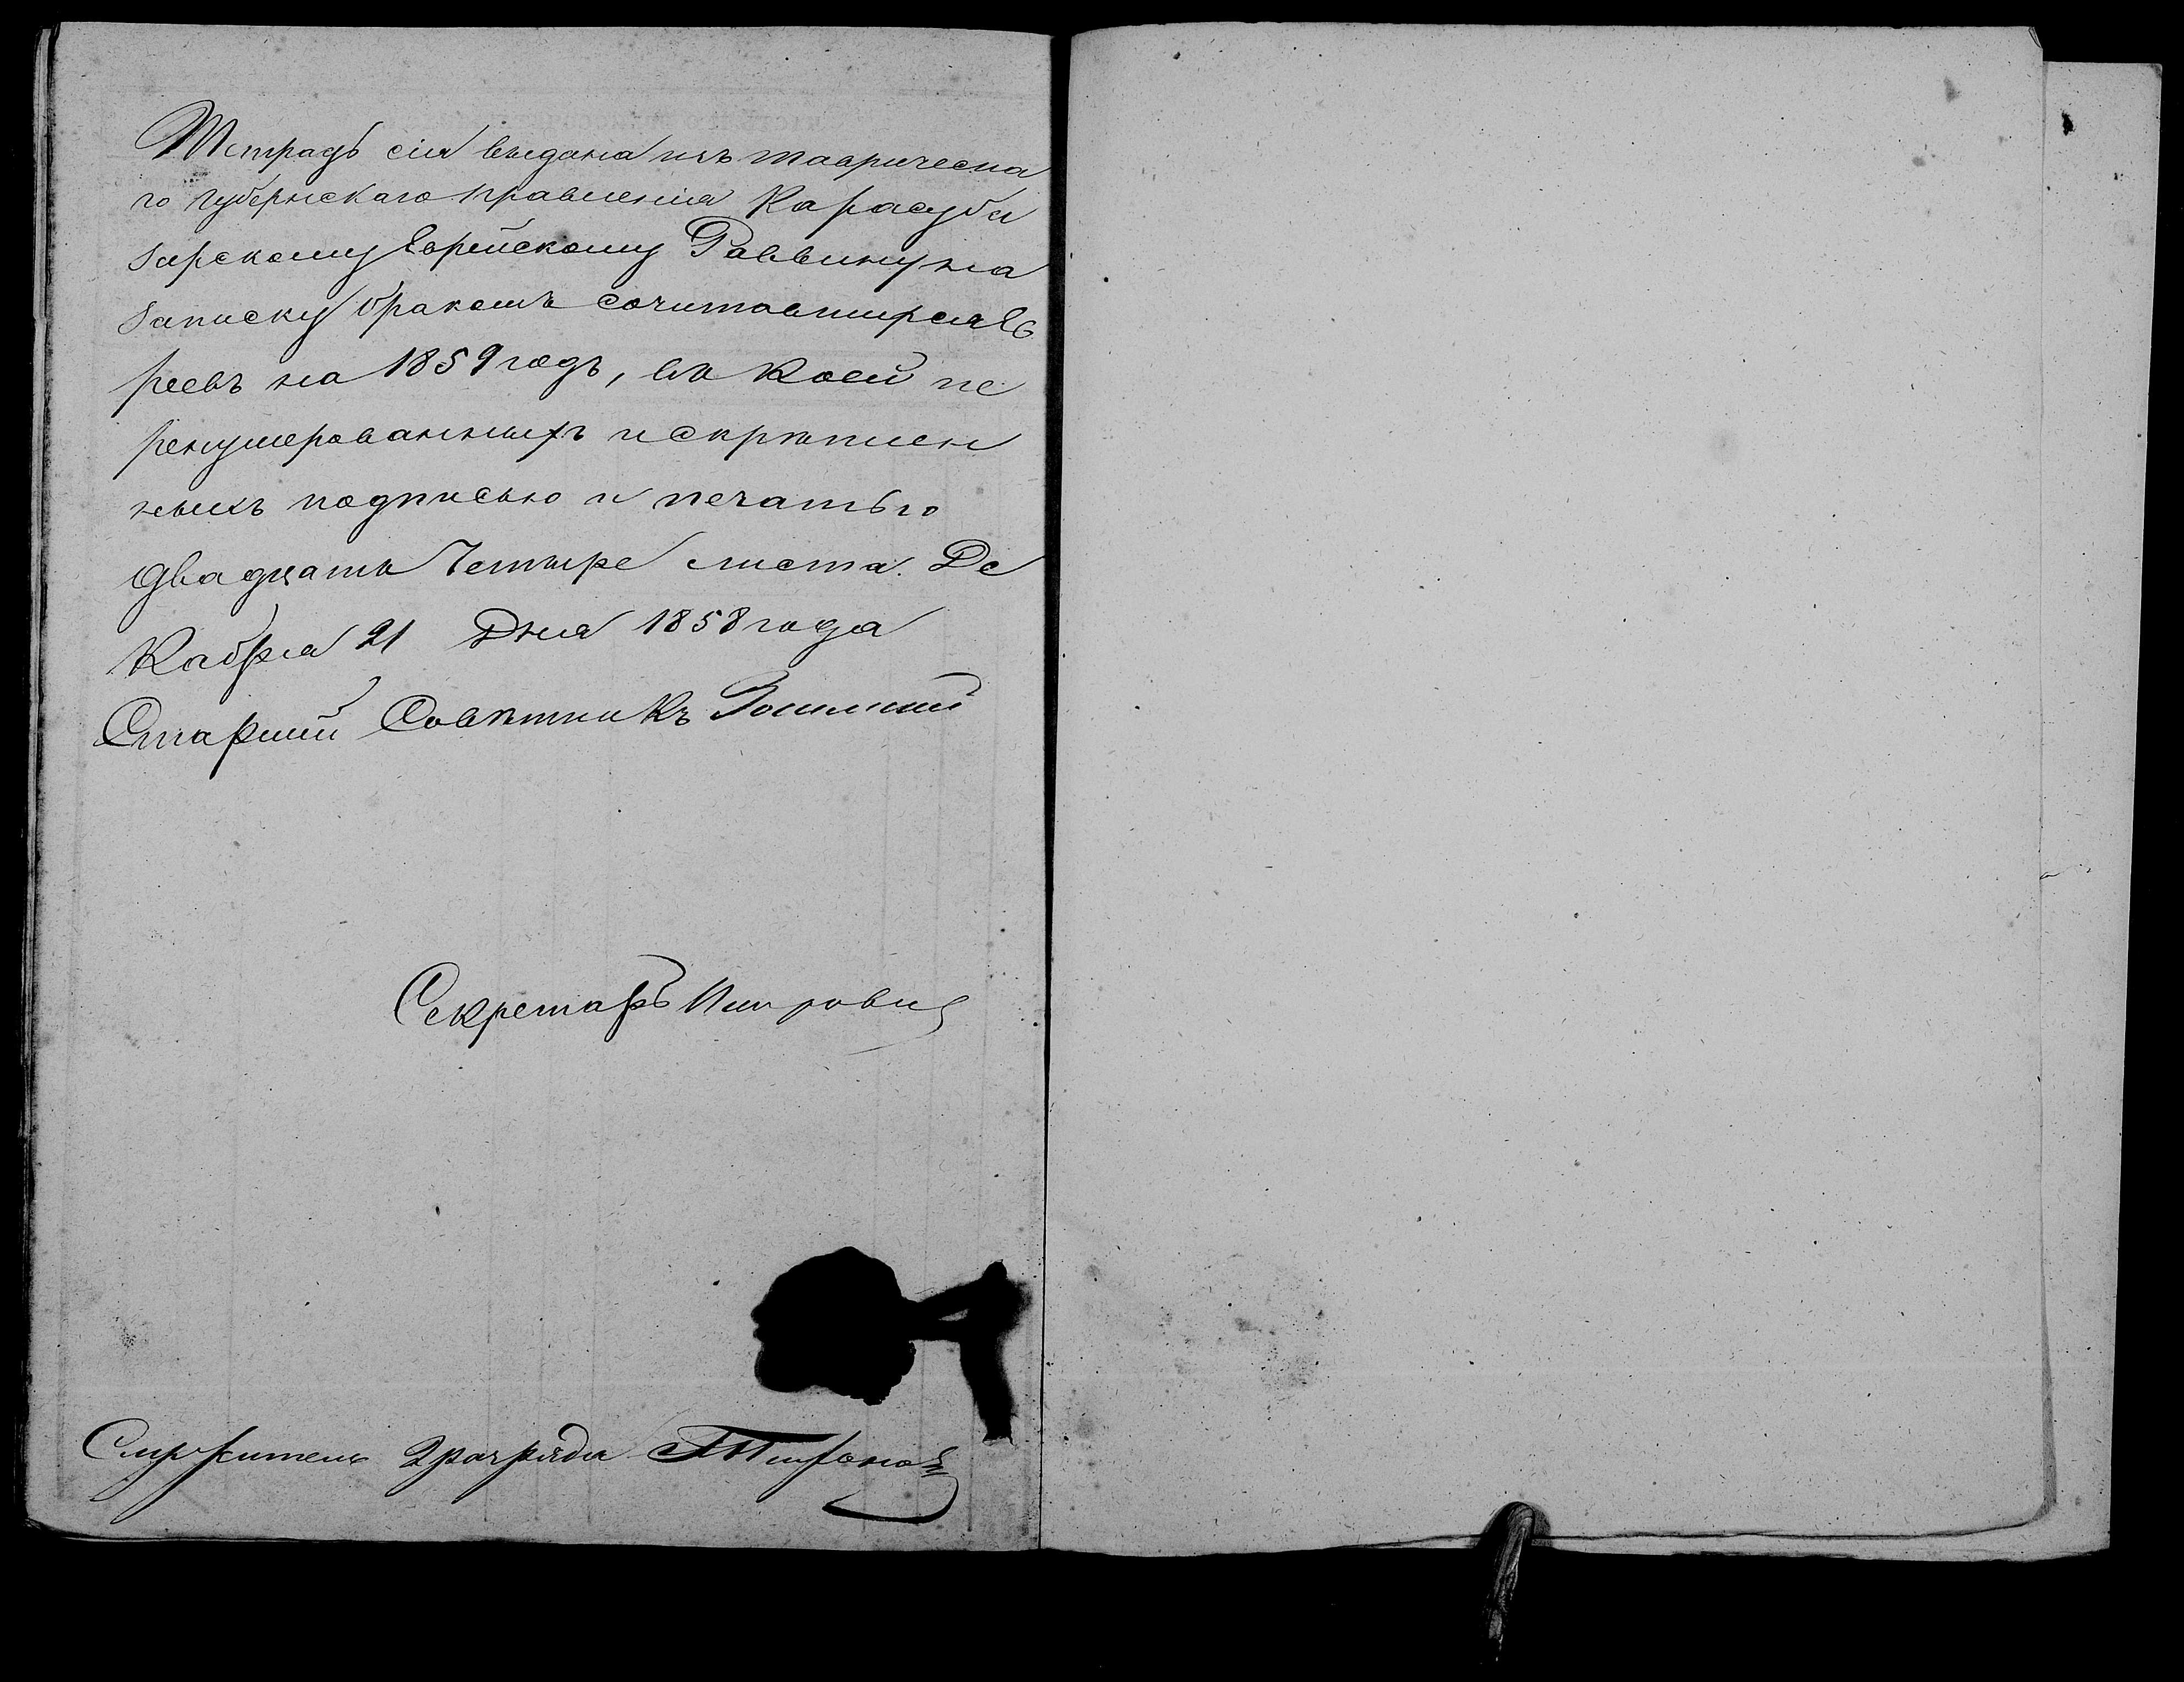 Тетрадь сія выдана изъ таврическа
го губернскаго правленія Карасуба
зарскому Еврейскому Раввину на
записку бракомъ сочитавшихся Ев
реевъ на 1859 годъ, въ коей пе
ренумерованныхъ и скрѣплен
ныхъ подписью и печатью
двадцать Четыре листа. Де
кабря 21 Дня 1858 года
Старшій Совѣтникъ
Секретарь
Служитель 2 разряда